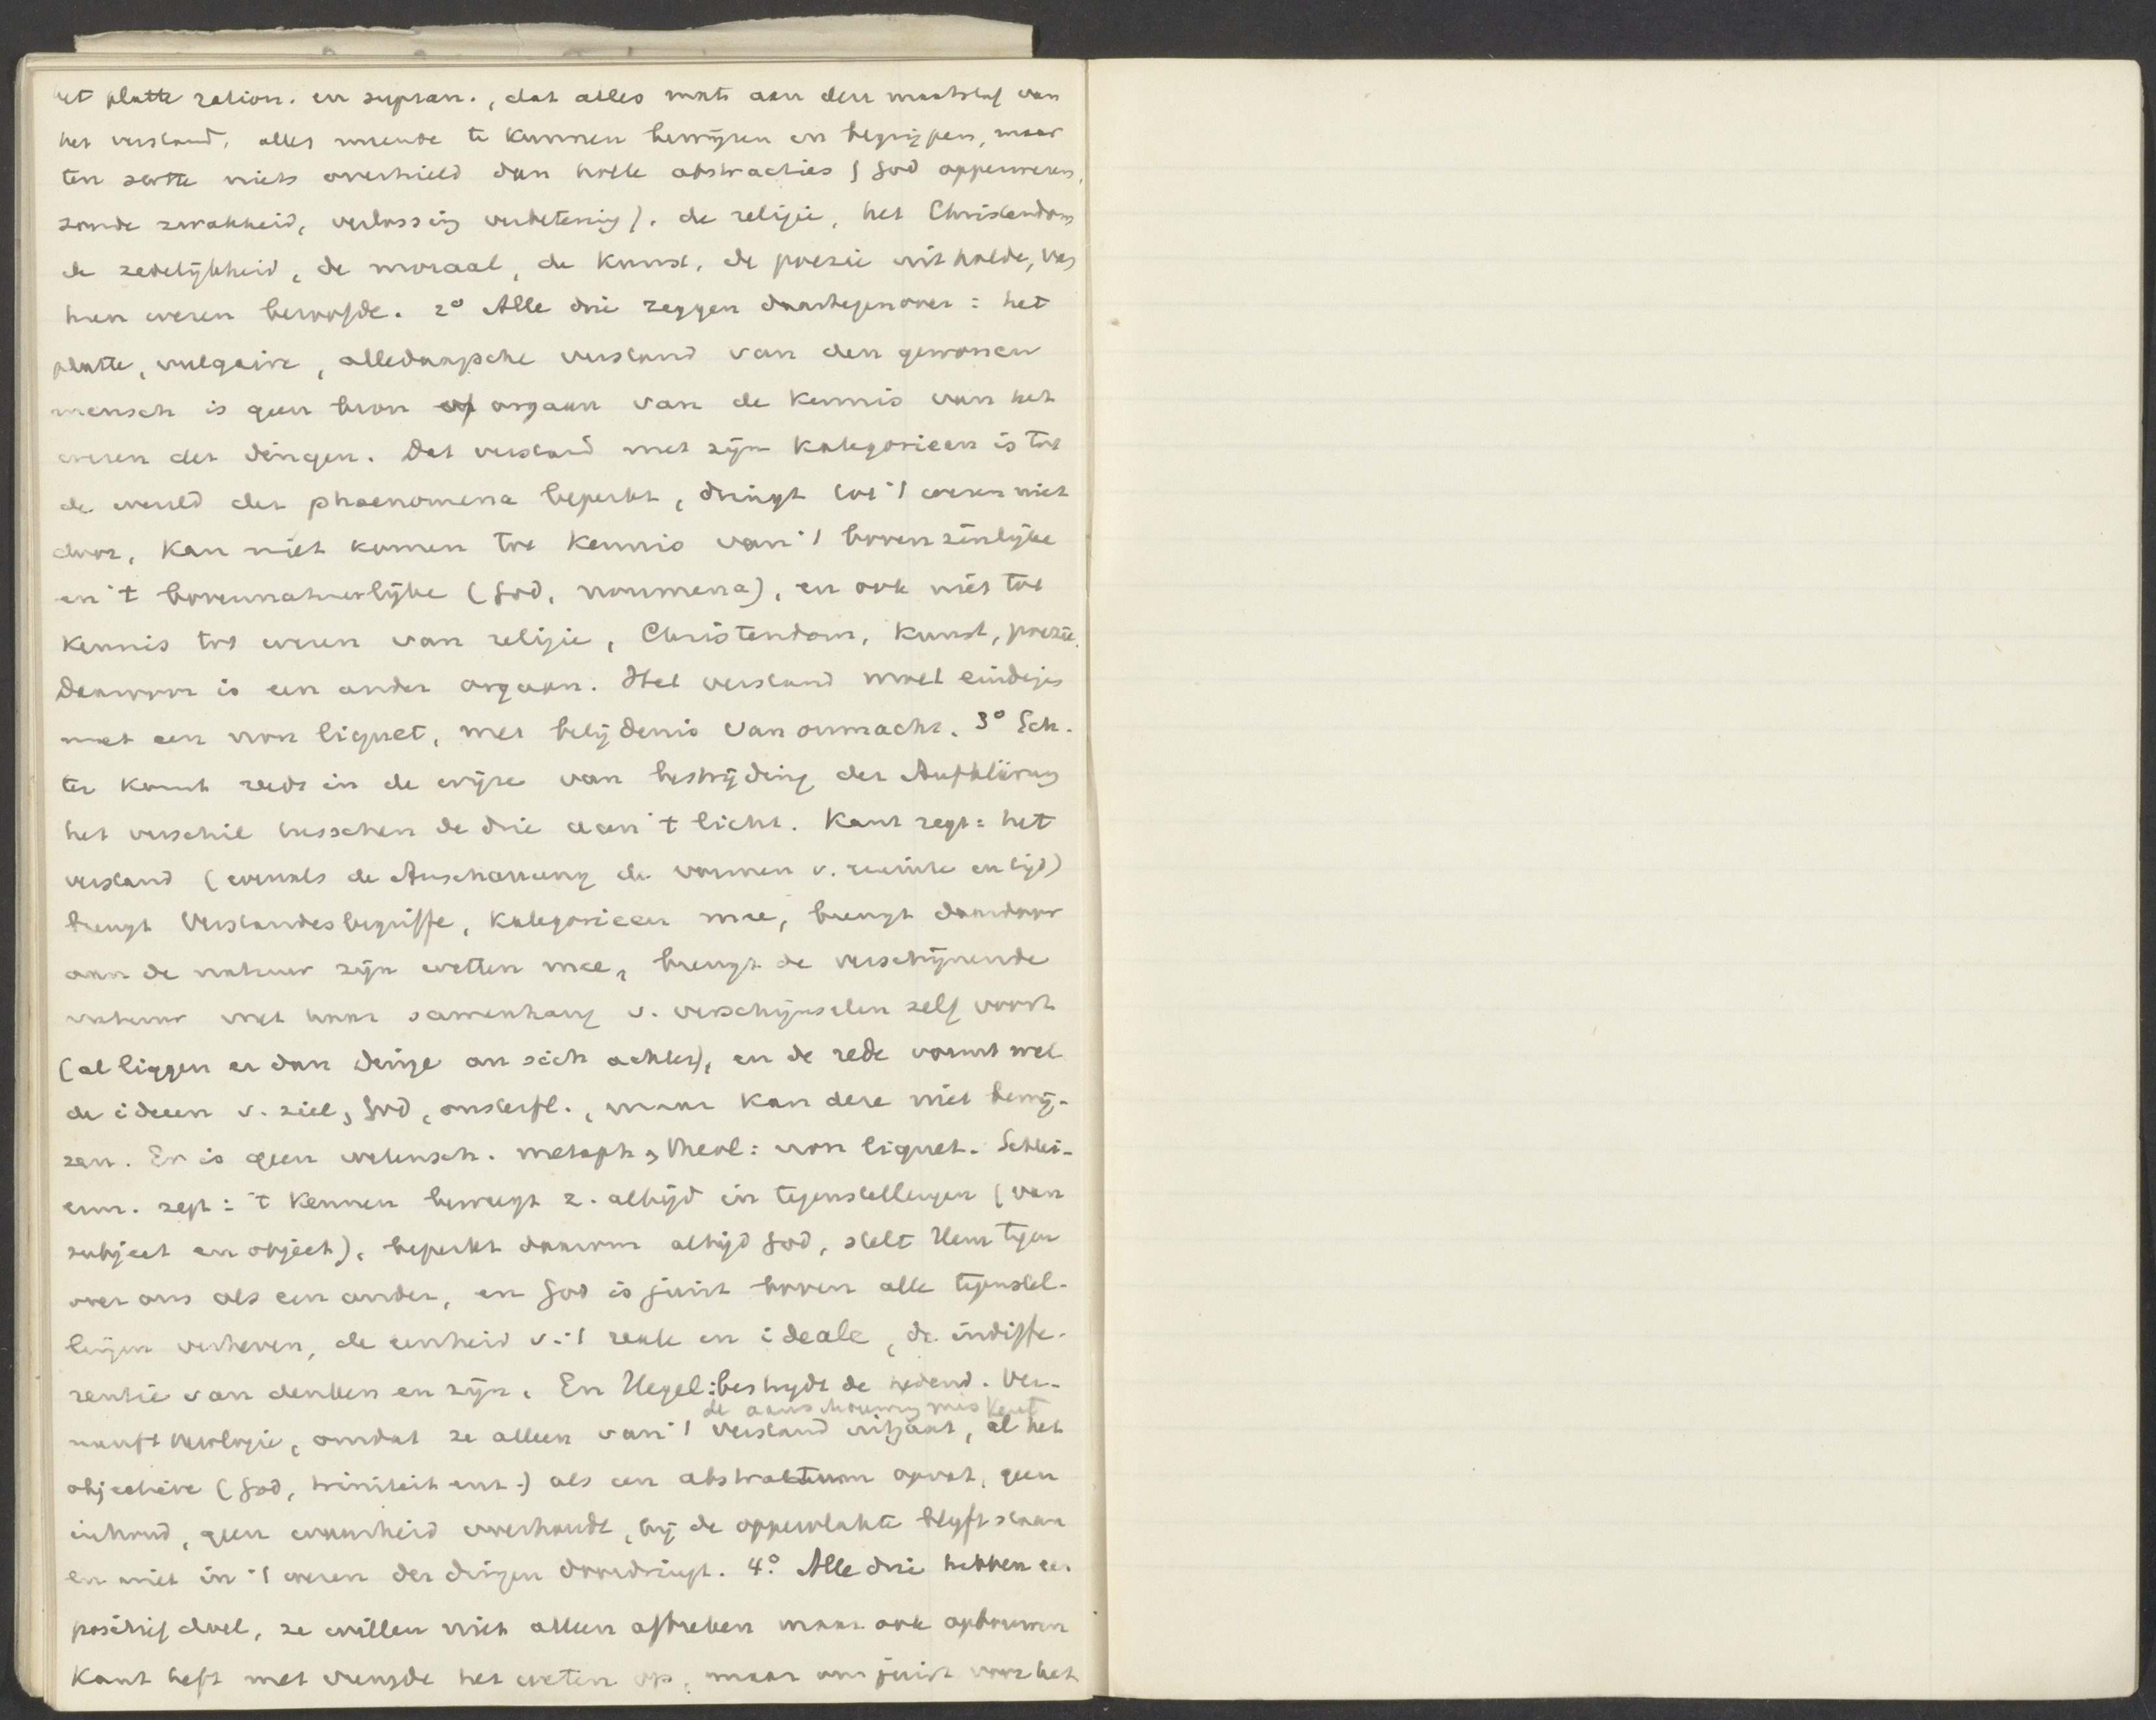 het platte ration. en supran., dat alles mat aan den maatstaf van
het verstand, alles meende te kunnen bewijzen en begrijpen, maar
ten slotte niets overhield dan holle abstracties (God opperwezen,
zonde zwakheid, verlossing verbetering). de religie, het Christendom
de zedelijkheid, de moraal, de kunst, de poezie uitholde, van
hun wezen beroofde. 2° Alle drie zeggen daartegenover: het
platte, vulgaire, alledaagsche verstand van den gewonen
mensch is geen bron of orgaan van de kennis van het
wezen der dingen. Dat verstand met zijn kategorieen is tot
de wereld der phaenomena beperkt, dringt tot 't wezen niet
door, kan niet komen tot kennis van 't bovenzinlijke
en 't bovennatuurlijke (God, noumena), en ook niet tot
kennis tot wezen van religie, Christendom, kunst, poezie.
Daarvoor is een ander orgaan. Het verstand moet eindigen
met een non liquet, met belijdenis van onmacht. 3° Ech-
ter komt reeds in de wijze van bestrijding der Aufklärung
het verschil tusschen de drie aan 't licht. Kant zegt: het
verstand (evenals de Anschauung de vormen v. ruimte en tijd)
brengt Verstandesbegriffe, kategorieen mee, brengt daardoor
aan de natuur zijn wetten mee, brengt de verschijnende
natuur met haar samenhang v. verschijnselen zelf voort
(al liggen er dan Dinge an sich achter), en de rede vormt wel
de ideeen v. ziel, God, onsterfl., maar kan deze niet bewij-
zen. Er is geen wetensch. metaph, theol: non liquet. Schlei-
erm. zegt: 't kennen beweegt z. altijd in tegenstellingen (van
subject en object), beperkt daarom altijd God, stelt Hem tegen
over ons als een ander, en God is juist boven alle tegenstel-
lingen verheven, de eenheid v. 't reale en ideale, de indiffe-
rentie van denken en zijn. En Hegel: bestrijdt de hedend. Ver-
de aanschouwing miskent
nunfttheologie, omdat ze alleen van 't verstand uitgaat, al het
objectieve (God, triniteit enz.) als een abstraktum opvat, geen
inhoud, geen waarheid overhoudt, bij de oppervlakte blijft staan
en niet in 't wezen der dingen doordringt. 4° Alle drie hebben een
positief doel, ze willen niet alleen afbreken maar ook opbouwen
Kant heft met vreugde het weten op, maar om juist voor het